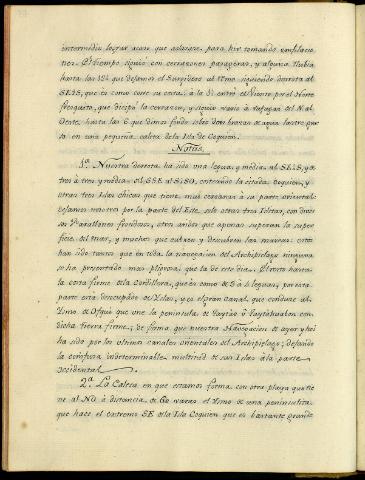 intermedio lograr acaso que aclarase para hir tomando enfilacio
nes. El tiempo siguió con cerrazones pasageras, y alguna llubia
hasta las 12½ que dejamos el Surgidero al remo siguiendo derrota al
SESS, que es como corre su costa: à la 3½ entró el Viento por el Norte
fresquito, que disipó la cerrazon, y siguió vario à rafagas del N. al
Oeste, hasta las 6 que dimos fondo sobre dos brazas de agua lastre pie
dra en una pequeña caleta de la Isla de Coquien.
Notas.
1ª Nuestra derrota há sido una legua y media al SESS, y o
tras à tres y media al SSE al S¼SO, costeando la citada Coquien, y
otras tres Islas chicas que tiene muy cercanas à su parte oriental:
dejamos nosotros por la parte del Este solo otras tres Isletas, con diver
sos Farallones frondosos, otros aridos que apenas superan la super
ficie del mar, y muchos que cubren y descubren las mareas: estos
han sido tantos que en toda la navegacion del Archipielago ninguna
se ha presentado mas pligrosa, que la de este dia. El resto hasta
la costa firme de la Cordillera, que es como de 3 à 4 leguas, por esta
parte está desocupado de Yslas, y es el gran canal, que conduce al
Ysmo de Ofqui que une la peninsula de Taytao ò Taytahaon con
dicha tierra firme; de forma que nuestra Navegacion de ayer y hoi
ha sido por los ultimos canales orientales del Archipielago; dejando
la confusa indeterminable multitud de sus Islas à la parte
occidental.
2ª La Caleta en que estamos forma con otra playa que tie
ne al NO à distancia de 60 varas el Ysmo de una peninsulita,
que hace el extremo SE de la Isla Coquien que es bastante grande